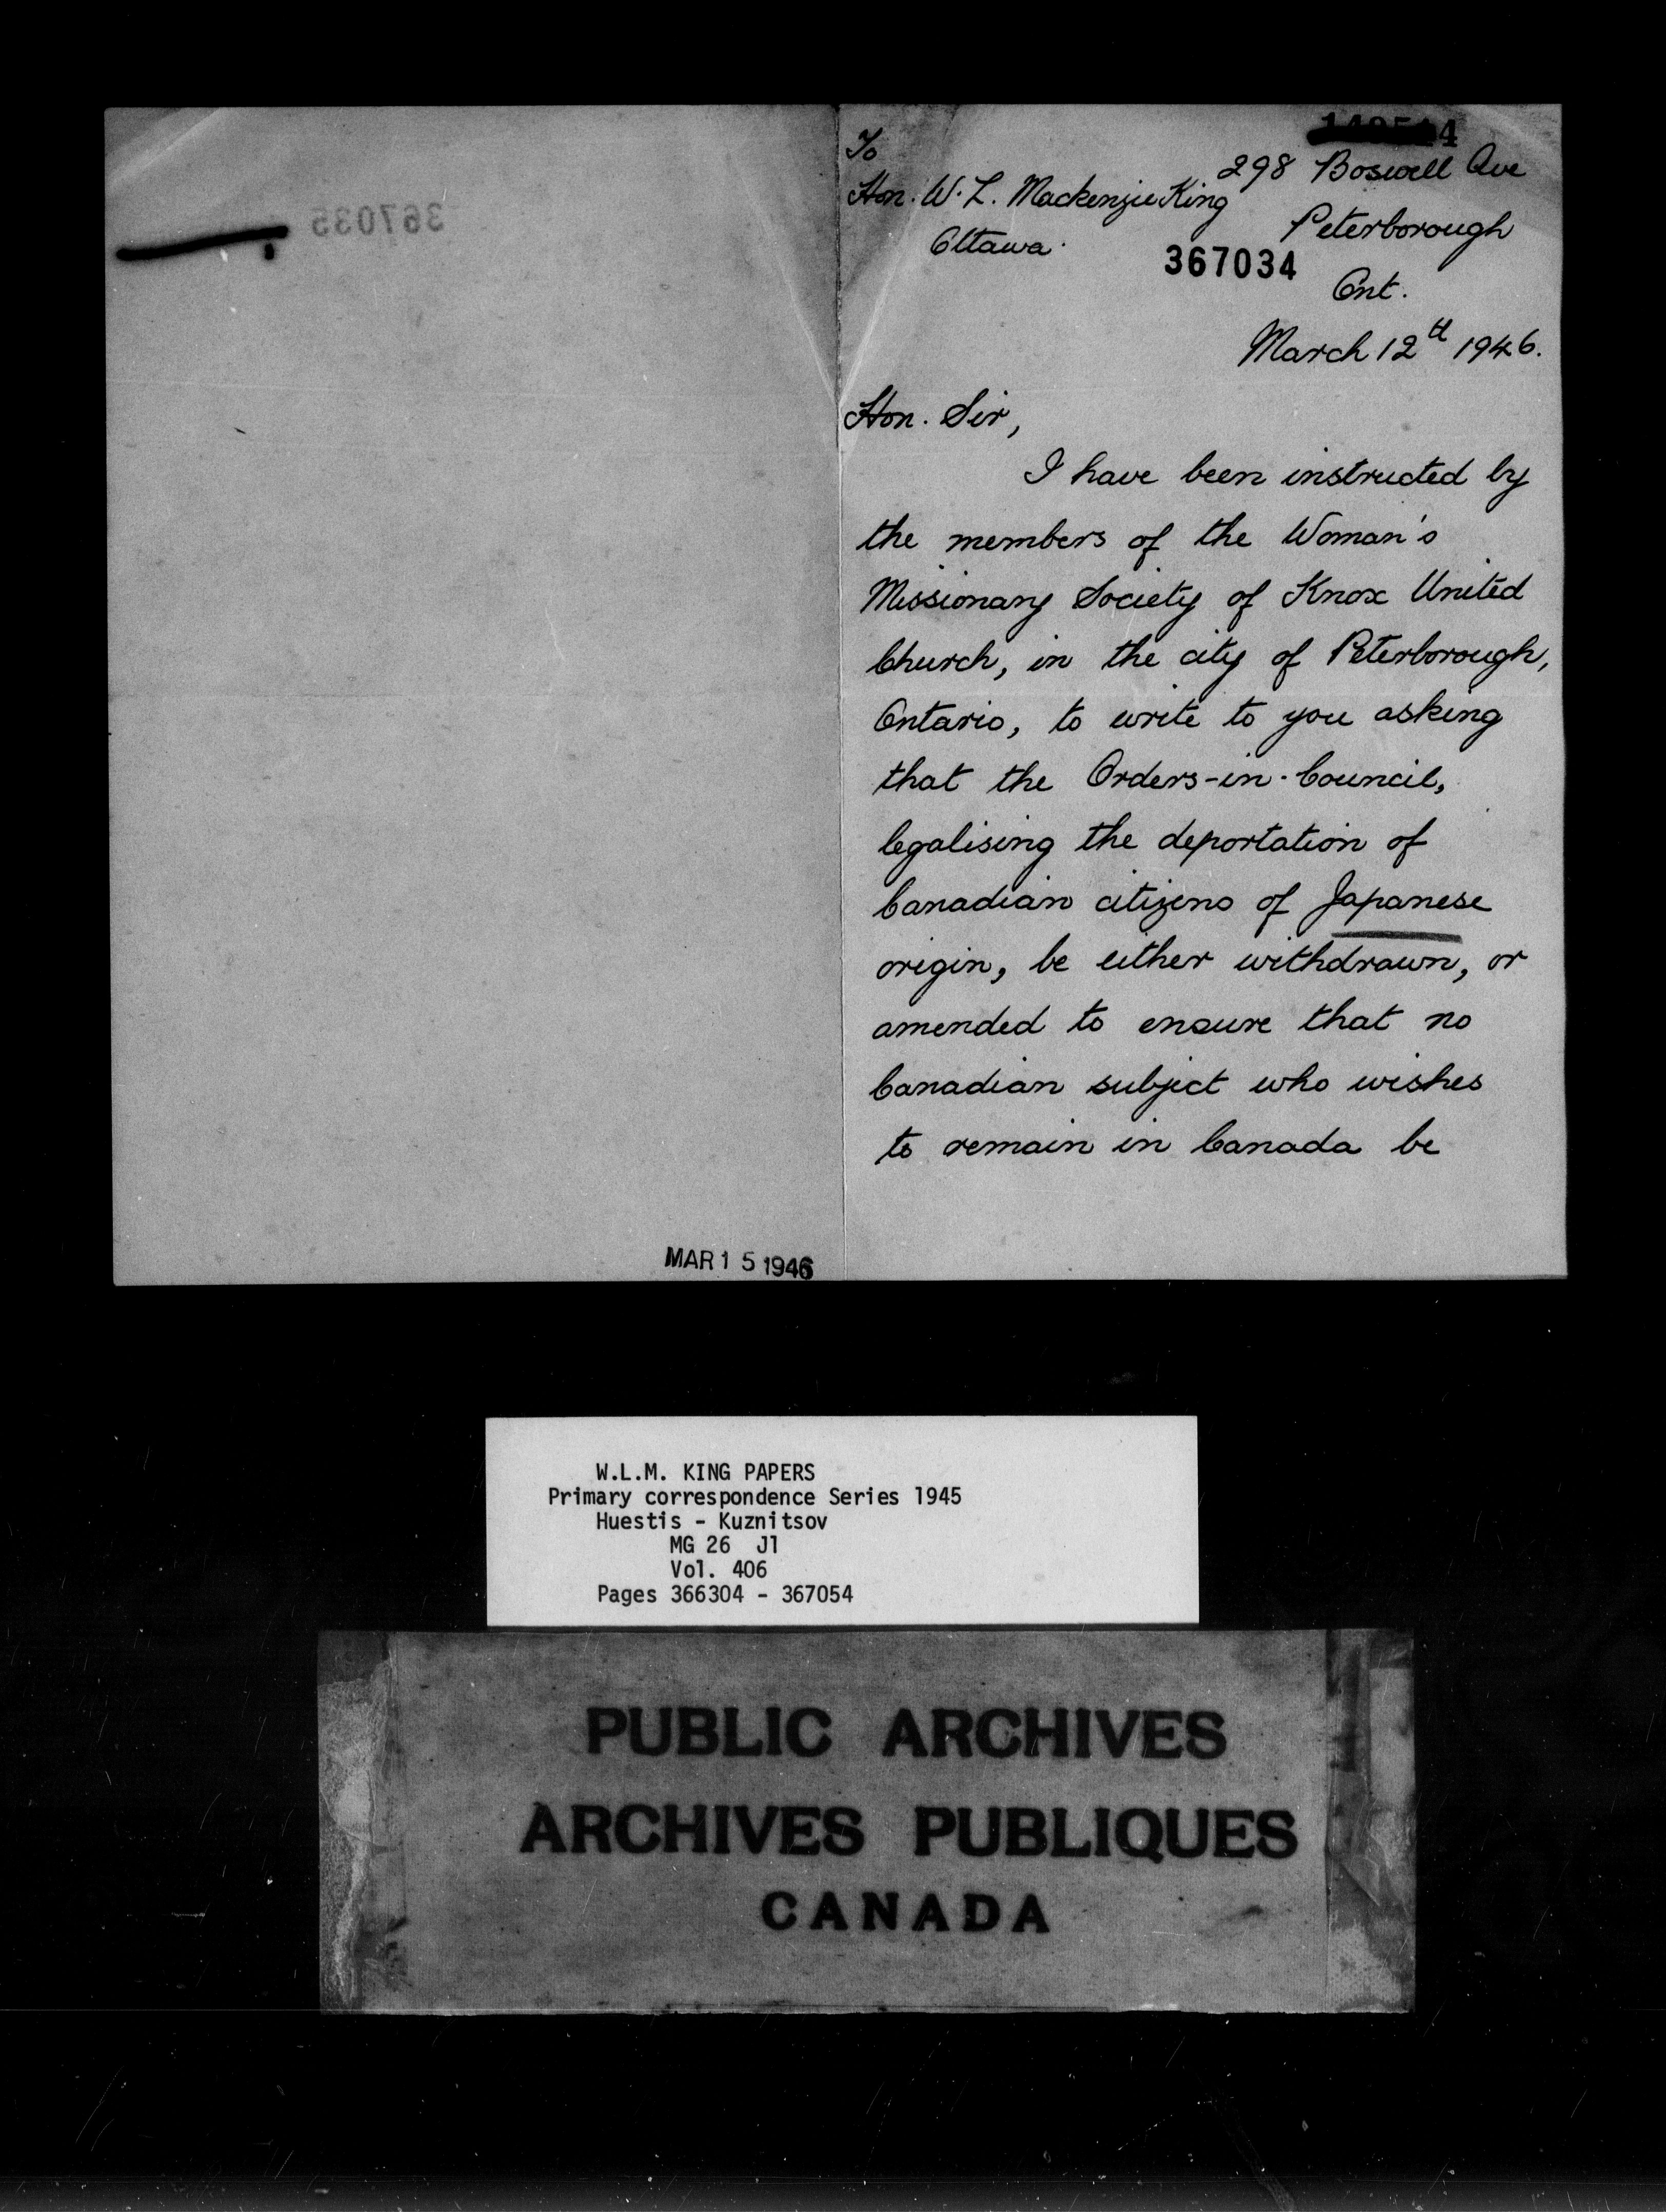 367035
MAR 15 1946
4
To
298 Boswell Ave
Hon. W. L. Mackenzie King
Peterborough
Ottawa.
367034
Ont.
March 12th 1946.
Hon. Sir,
I have been instructed by
the members of the Woman's
Missionary Society of Knox United
Church, in the city of Peterborough,
Ontario, to write to you asking
that the Orders-in-Council,
legalising the deportation of
Canadian citizens of Japanese
origin, be either withdrawn, or
amended to ensure that no
Canadian subject who wishes
to remain in Canada be
W.L.M. KING PAPERS
Primary correspondence Series 1945
Huestis - Kuznitsov
MG 26 J1
Vol. 406
Pages 366304 - 367054
PUBLIC ARCHIVES
ARCHIVES PUBLIQUES
CANADA